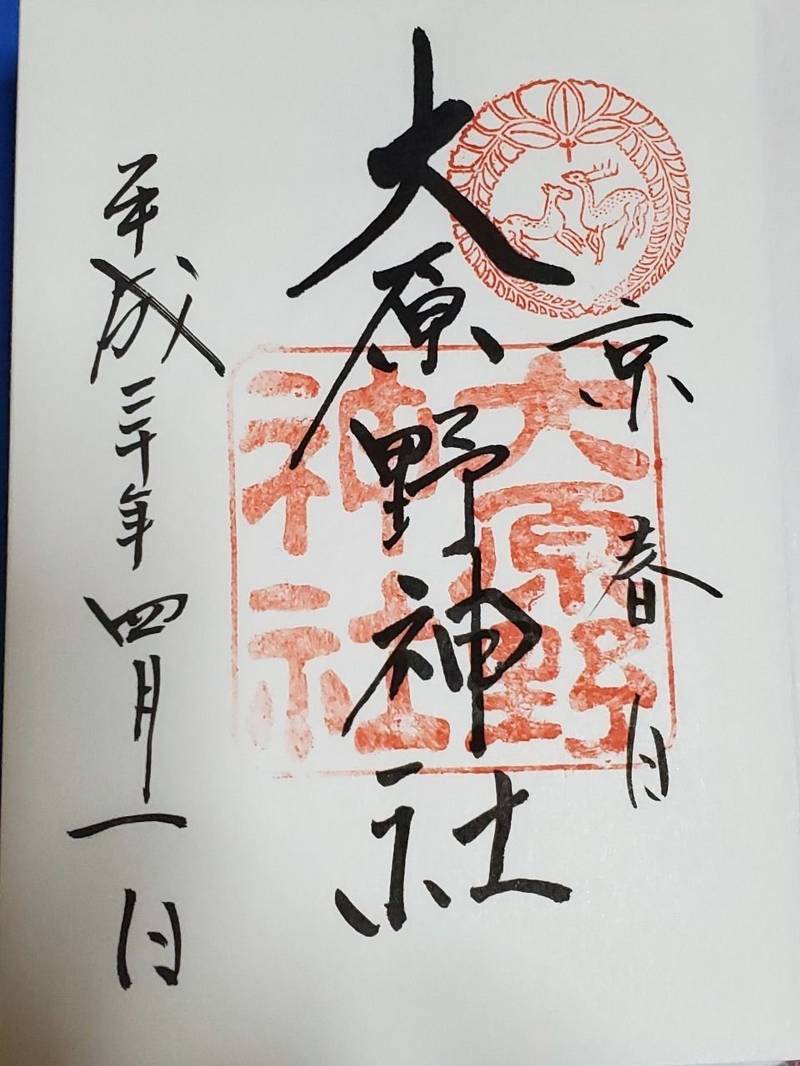 京春日
大原野神社
大原野
神社
平成三十年四月一日